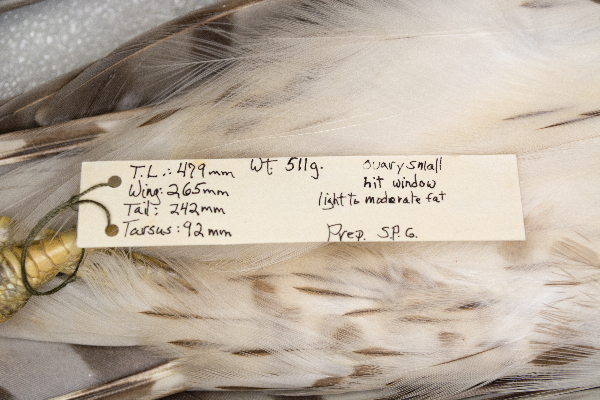 T.L.: 479mm
Wing: 265mm
Tail: 242mm
Tarsus: 92mm
Wt. 511g.
ovary small
hit window
light to moderate fat
Prep. S.P.G.